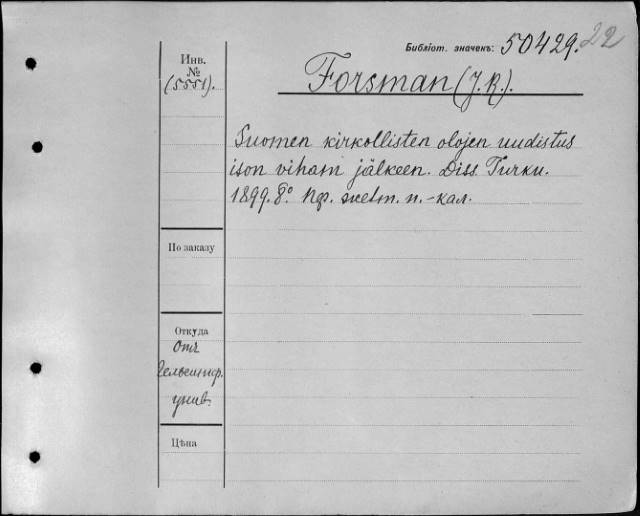 Библіот. значекъ: 50429. 22
Инв.
№
(5551).
Forsman (J. R.).
Suomen kirkollisten olojen uudistus
ison vihan jälkeen. Diss. Turku.
1899. 8°.
По заказу
Откуда
Отъ
Гельсингф.
унив.
Цѣна